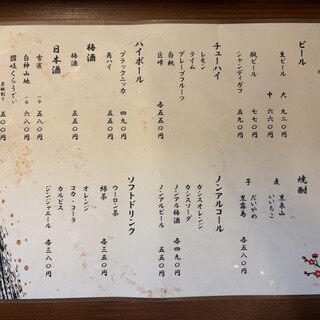 ビール
生ビール 大 九二〇円
中 六六〇円
瓶ビール 七七〇円
シャンディガフ 五九〇円
チューハイ
レモン
ライム
グレープフルーツ
白桃
巨峰 各五五〇円
ハイボール
ブラックニッカ 四九〇円
角ハイ 五五〇円
梅酒
梅酒 五五〇円
日本酒
雪雀 一合 五五〇円
白神山地 一合 六八〇円
讃岐くらうでぃ 五〇〇円
焼酎
麦 里泉山
いいちこ
芋 だいやめ
黒霧島 各五八〇円
ノンアルコール
カシスオレンジ
カシスソーダ
ノンアル梅酒 各四九〇円
ノンアルビール 五五〇円
ソフトドリンク
ウーロン茶
緑茶 各三五〇円
オレンジ
コカ・コーラ
カルピス
ジンジャエール 各三八〇円